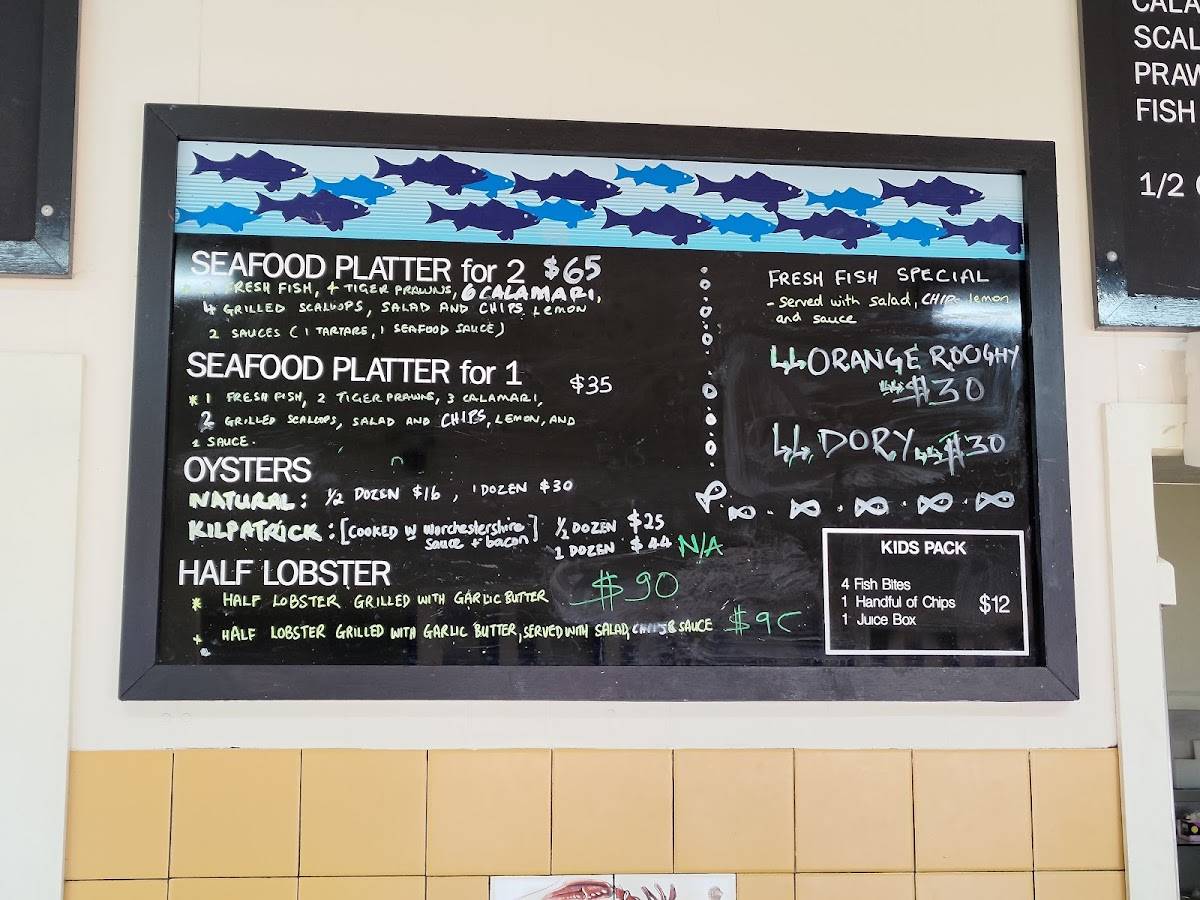 SEAFOOD PLATTER for 2 $65
FRESH FISH, 4 TIGER PRAWNS, 6 CALAMARI,
4 GRILLED SCALLOPS, SALAD AND CHIPS LEMON
2 SAUCES (1 TARTARS, 1 SEAFOOD SAUCE)
SEAFOOD PLATTER for 1 $35
* 1 FRESH FISH, 2 TIGER PRAWNS, 3 CALAMARI,
2 GRILLED SCALLOPS, SALAD AND CHIPS, LEMON, AND
1 SAUCE.
OYSTERS
NATURAL: 1/2 DOZEN $16, 1 DOZEN $30
KILPATRICK: [COOKED W Worchestershire sauce + bacon] 1/2 DOZEN $25
1 DOZEN $44 N/A
HALF LOBSTER
* HALF LOBSTER GRILLED WITH GARLIC BUTTER $90
+ HALF LOBSTER GRILLED WITH GARLIC BUTTER, SERVED WITH SALAD, CHIPS & SAUCE
FRESH FISH SPECIAL
- Served with salad, CHIPS lemon
and sauce
ORANGE ROOGHY
$30
DORY $30
KIDS PACK
4 Fish Bites
1 Handful of Chips $12
1 Juice Box
FISH
1/2